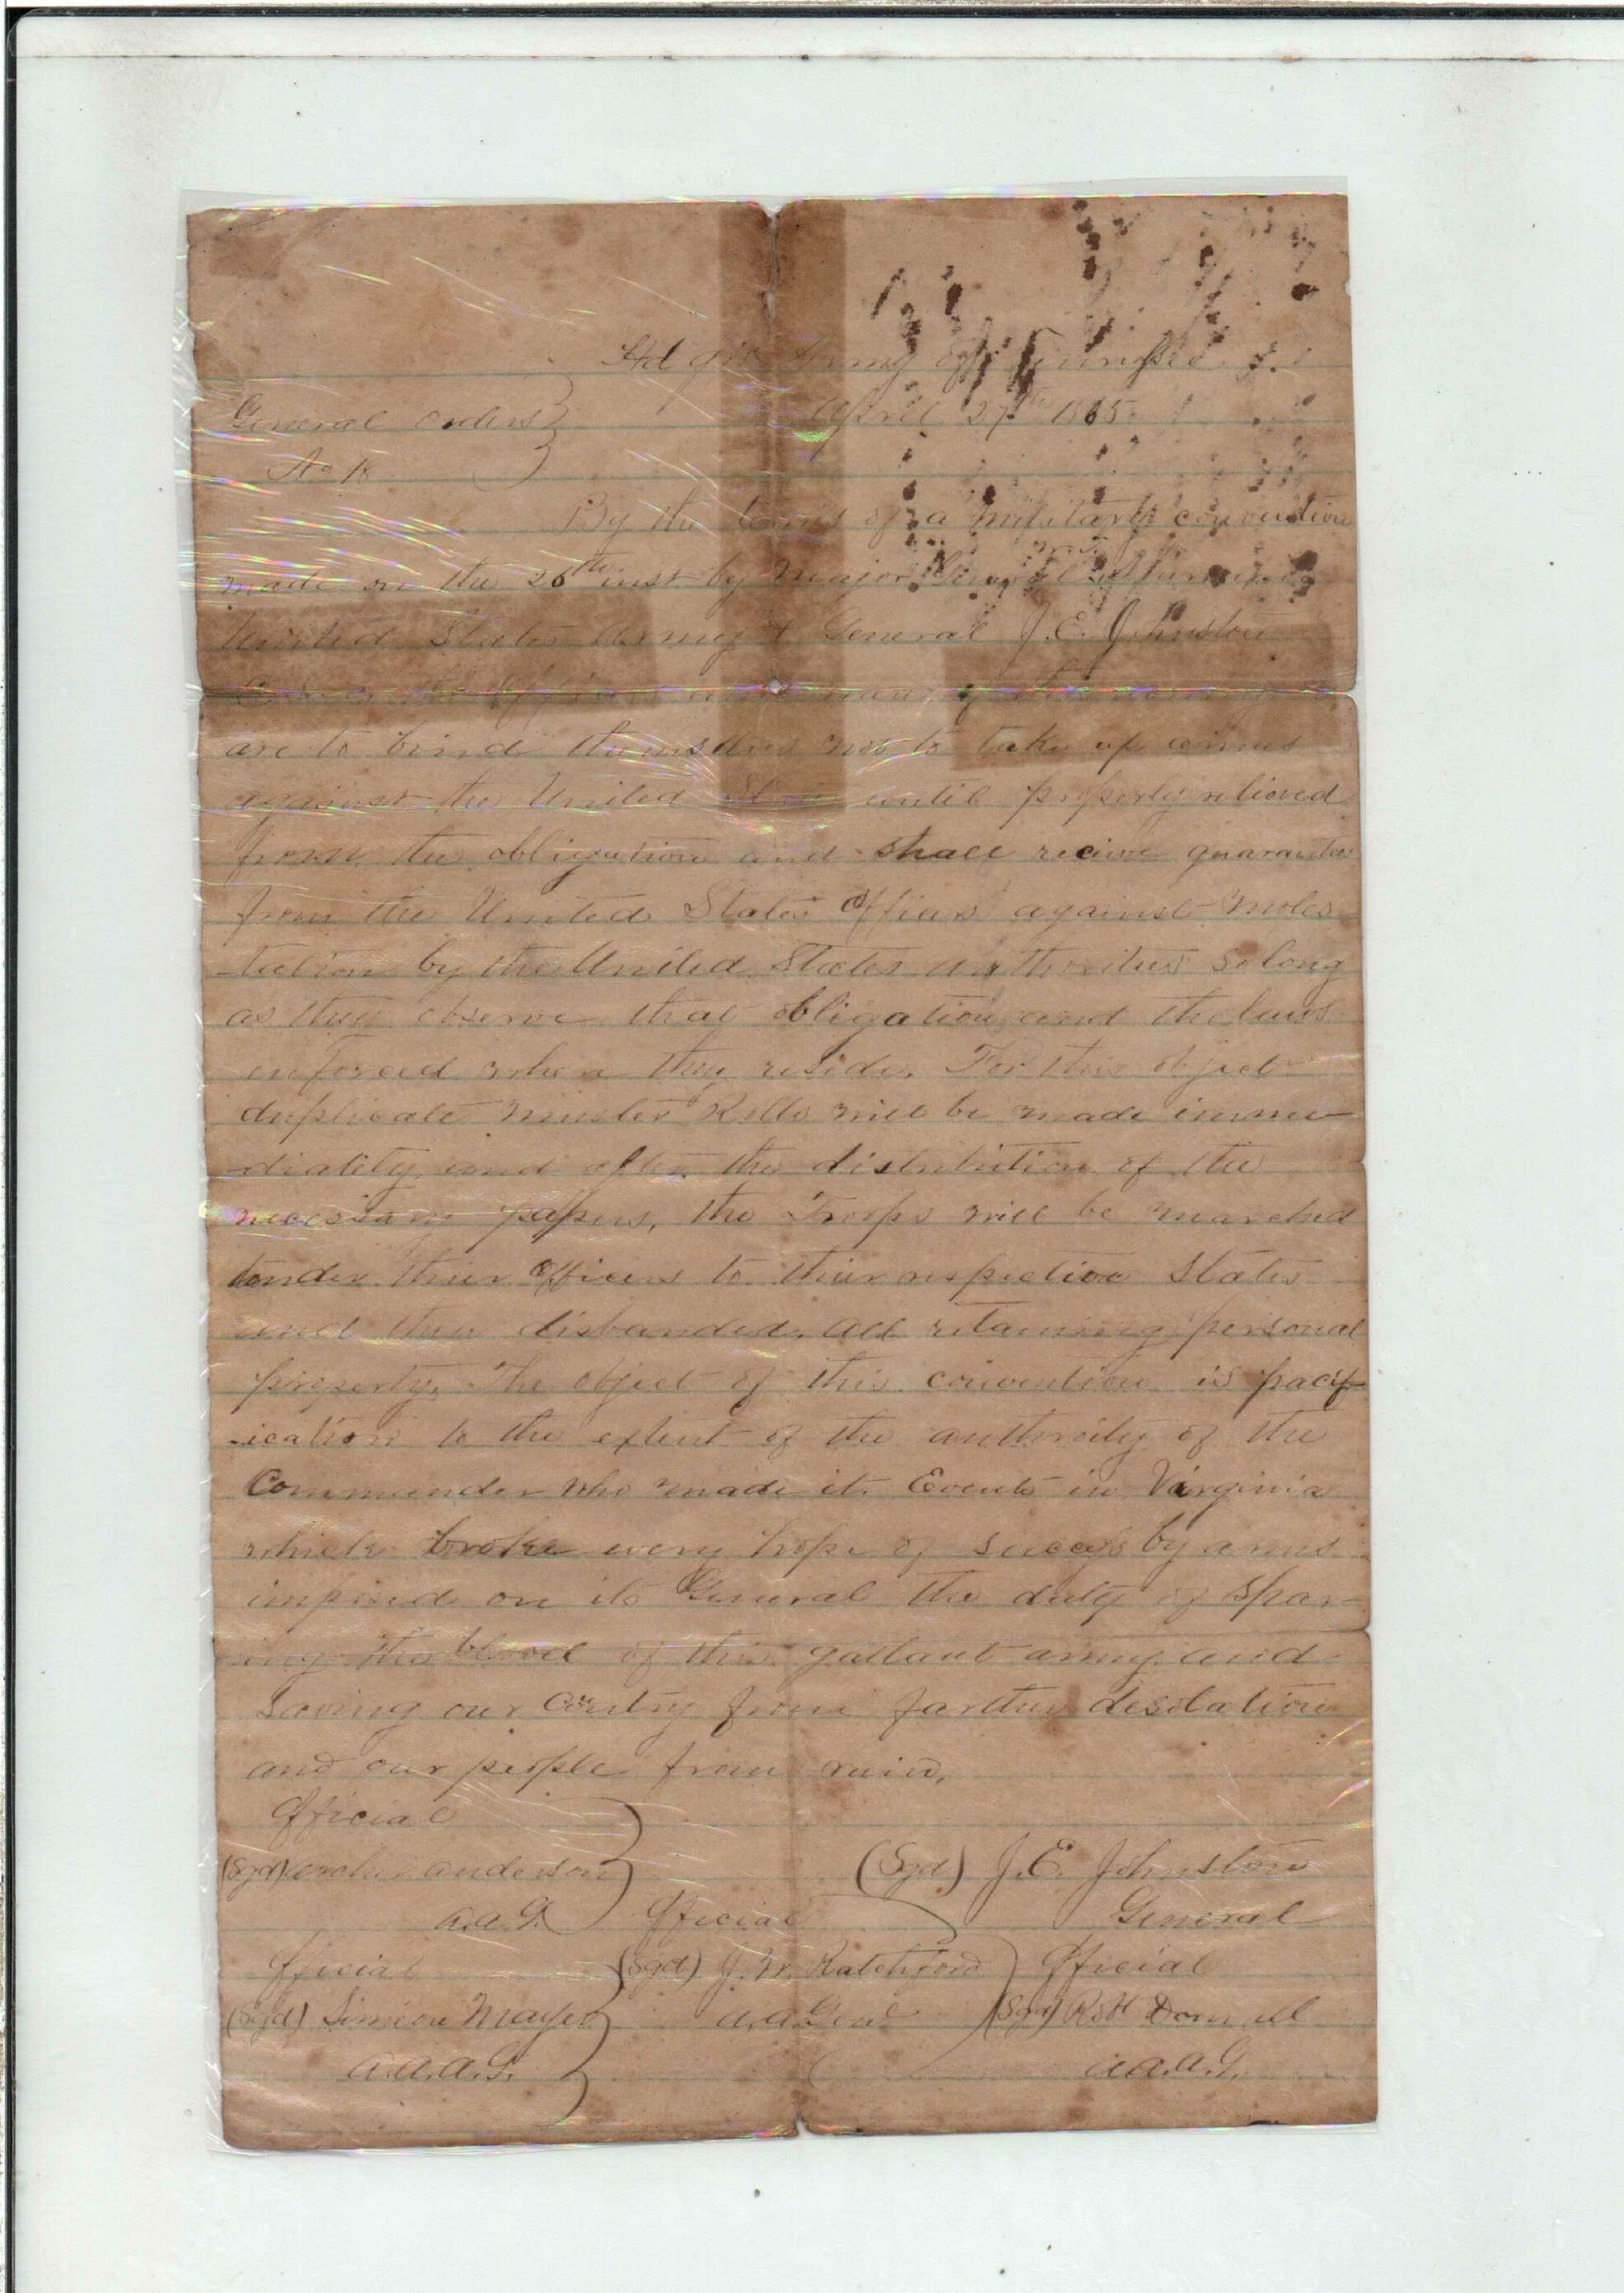 Hd qrs Army of Tennessee
General orders } April 27th 1865
No 18 }
By the terms of a military convention
made on the 26th inst by Major General W.T. Sherman
United States Army & General J.E. Johnston
C.S. Army the officers and men of this army
are to bind themselves not to take up arms
against the United States until properly relieved
from the obligation and shall receive guarantee
from the United States Officers against moles
-tation by the United States authorities so long
as they observe that obligation and the laws
enforced where they reside. For this object
duplicate Muster Rolls will be made imme
-diatity and after the distribution of the
necessary papers, the Troops will be marched
under their Officers to their respective States
and then disbanded. all retaining personal
property. The object of this convention is pacif
-ication to the extent of the authority of the
Commander who made it. Events in Virginia
which broke every hope of success by arms
imposed on its General the duty of spar
-ing the blood of this gallant army and
saving our Contry from farther desolation
and our people from ruin.
Official
(Sgd) Archer Anderson } (Sgd) J.E. Johnston
A.A.G. Official General
Official (Sgd) J.W. Ratchford } Official
(Sgd) Simeon Mayer } A.A Genl (Sgd) R.H
A.A.A.G. A.A.A.G.